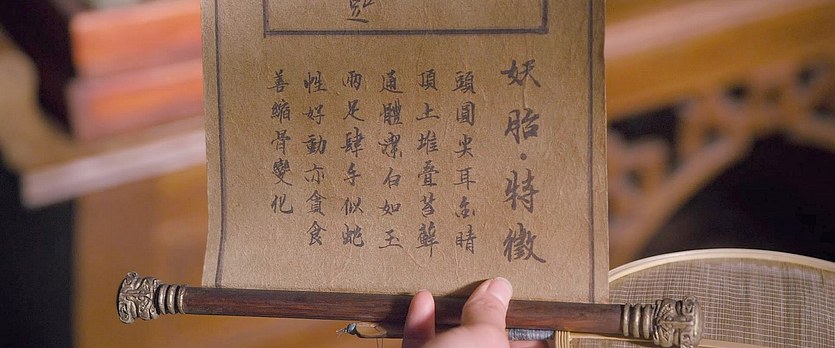 妖胎·特徵
頭圓尖耳金睛
頂土堆疊苔蘚
通體潔白如玉
兩足肆手似蛇
性好動亦貪食
善縮骨變化